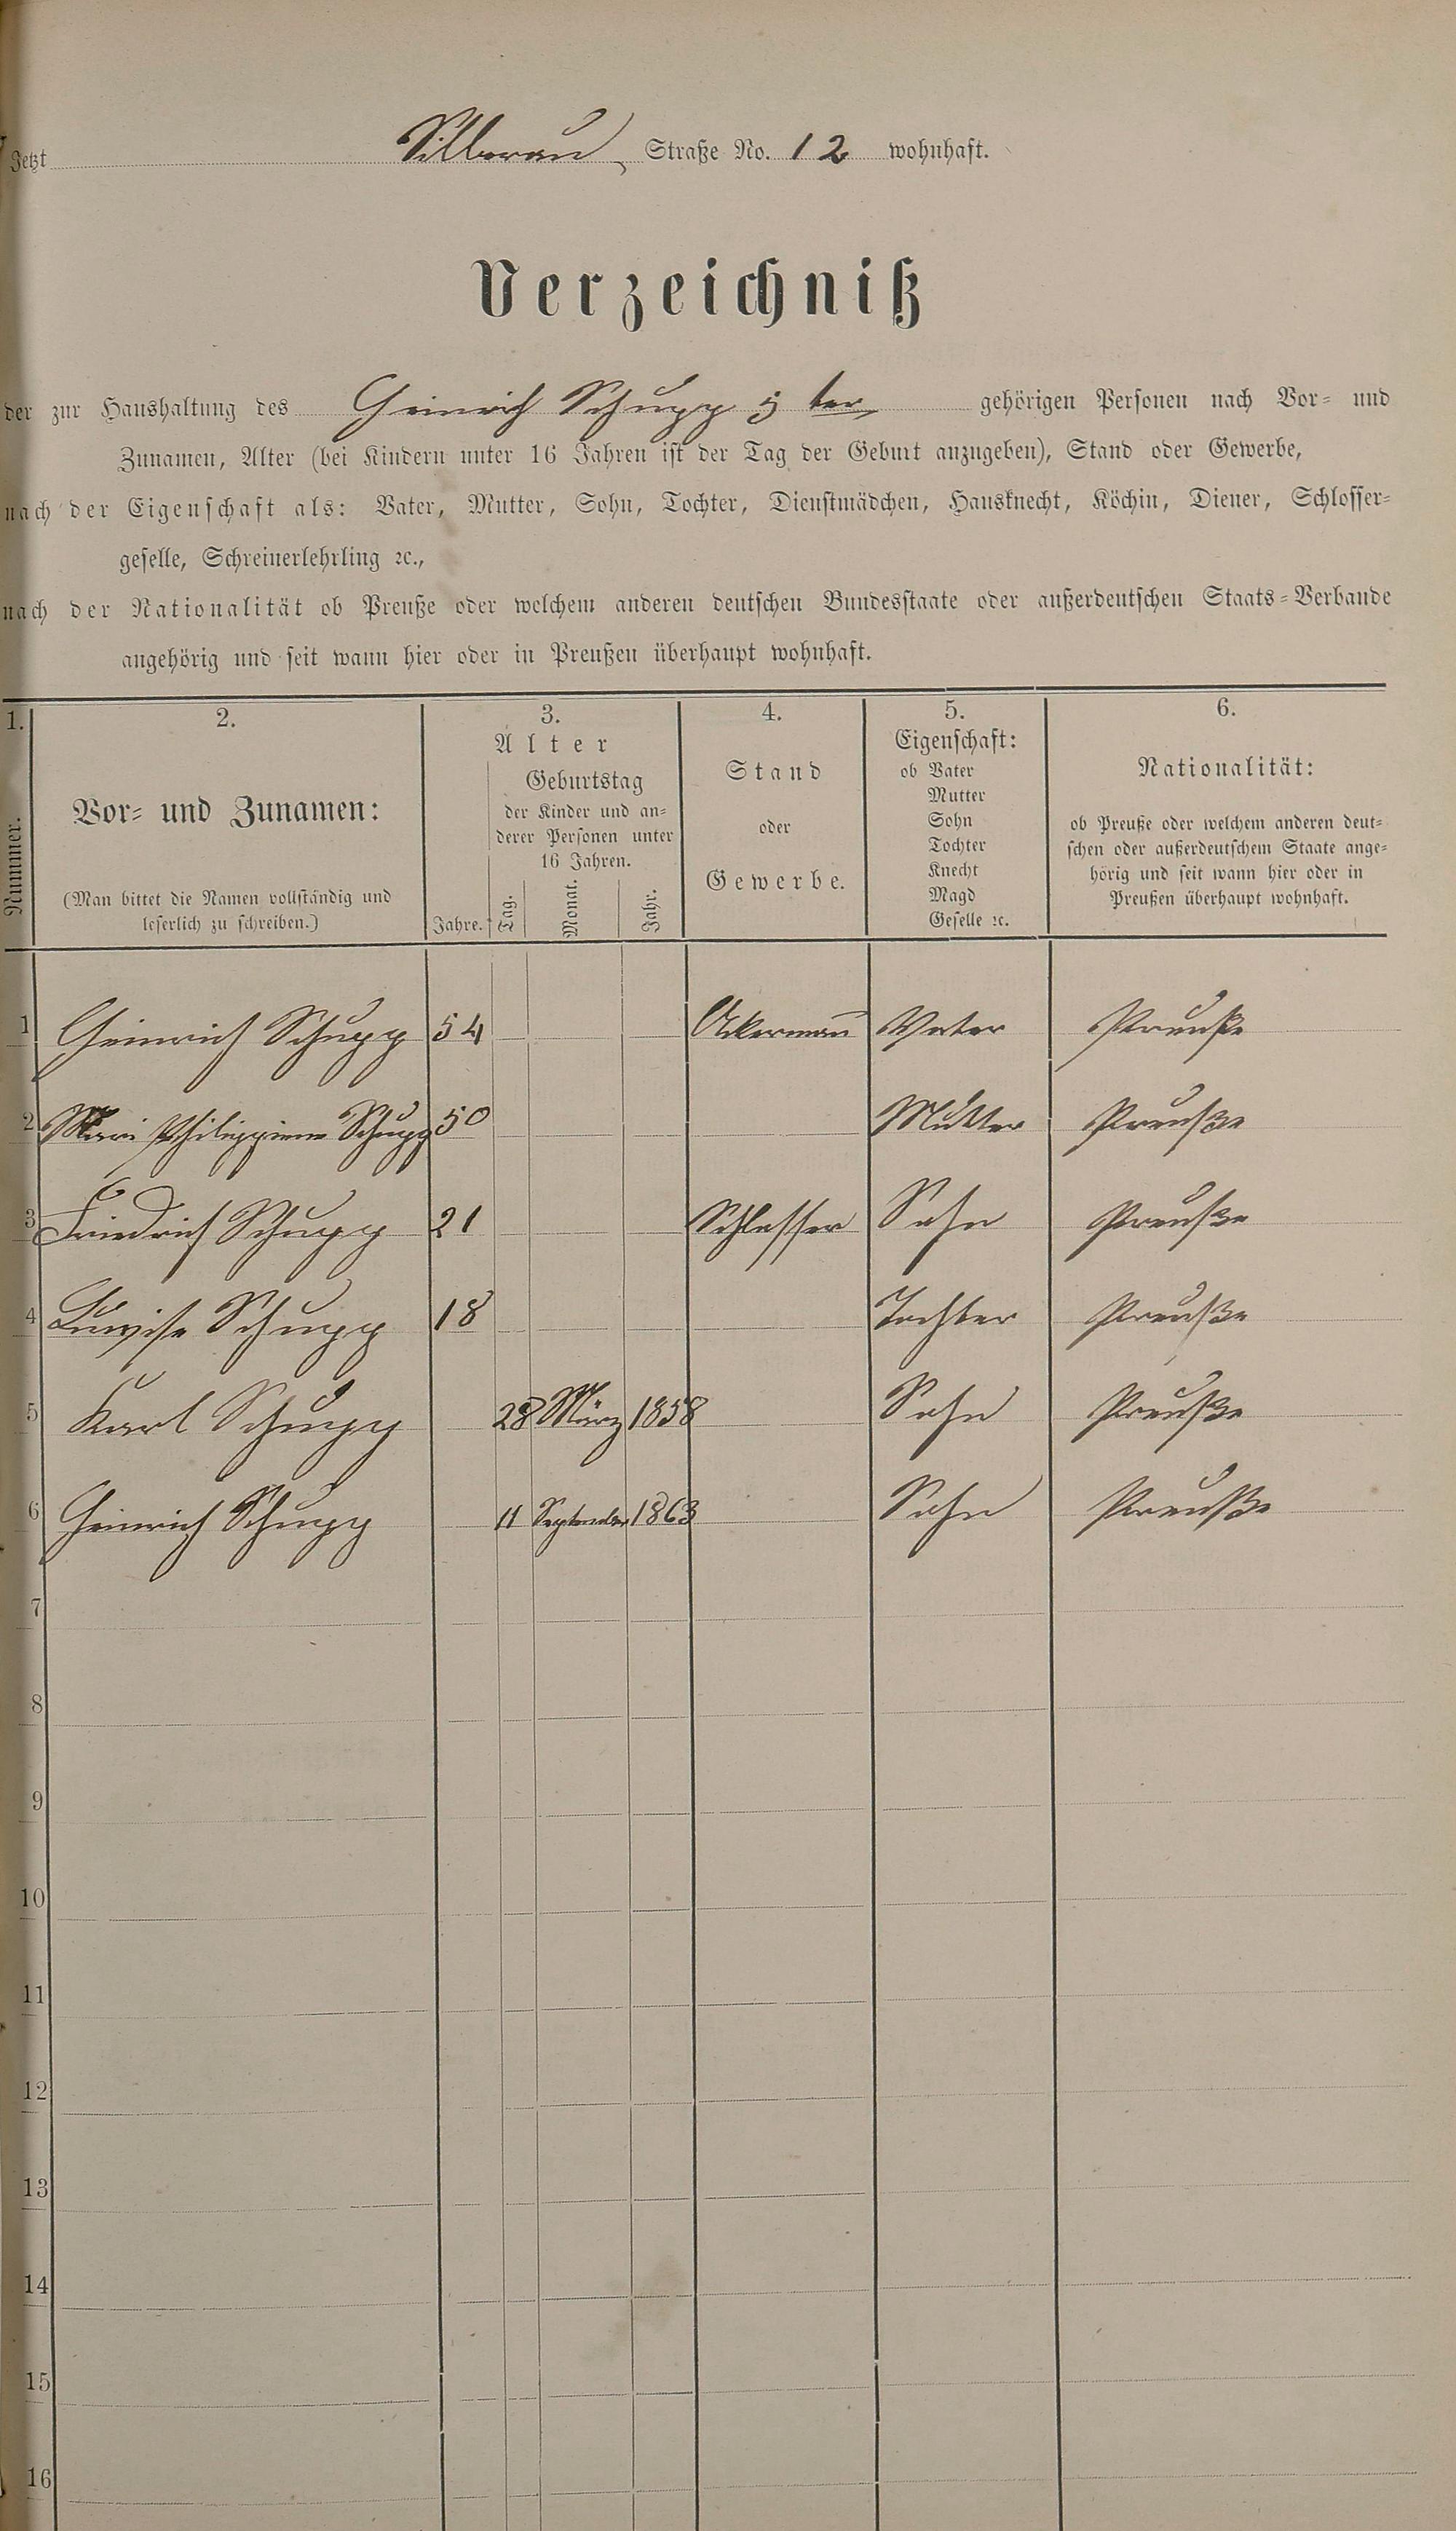 Jetzt Silberau Straße No. 12 wohnhaft.
Verzeichniß
der zur Haushaltung des Heinrich Schupp 5 ter gehörigen Personen nach Vor- und
Zunamen, Alter (bei Kindern unter 16 Jahren ist der Tag der Geburt anzugeben), Stand oder Gewerbe,
nach der Eigenschaft als: Vater, Mutter, Sohn, Tochter, Dienstmädchen, Hausknecht, Köchin, Diener, Schlosser-
geselle, Schreinerlehrling ꝛc.,
nach der Nationalität ob Preuße oder welchem anderen deutschen Bundesstaate oder außerdeutschen Staats-Verbande
angehörig und seit wann hier oder in Preußen überhaupt wohnhaft.
1.
Nummer.
2.
Vor- und Zunamen:
(Man bittet die Namen vollständig und
leserlich zu schreiben.)
3.
Alter
Jahre.
Geburtstag
der Kinder und an-
derer Personen unter
16 Jahren.
Tag.
Monat.
Jahr.
4.
Stand
oder
Gewerbe.
5.
Eigenschaft:
ob Vater
Mutter
Sohn
Tochter
Knecht
Magd
Geselle ꝛc.
6.
Nationalität:
ob Preuße oder welchem anderen deut-
schen oder außerdeutschem Staate ange-
hörig und seit wann hier oder in
Preußen überhaupt wohnhaft.
1 Heinrich Schupp 54 Ackermann Vater Preuße
2 Mari Philippine Schupp 50 Mutter Preuße
3 Friedrich Schupp 21 Schlosser Sohn Preuße
4 Luwise Schupp 18 Tochter Preuße
5 Karl Schupp 28 März 1858 Sohn Preuße
6 Heinrich Schupp 11 September 1863 Sohn Preuße
7
8
9
10
11
12
13
14
15
16